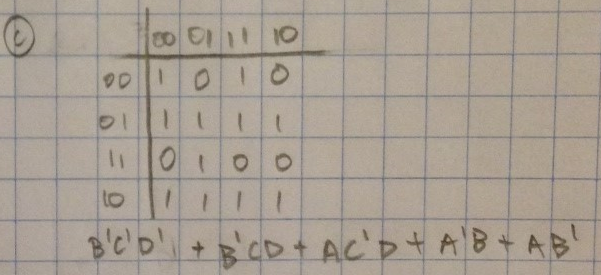 c
00 01 11 10
00 1 0 1 0
01 1 1 1 1
11 0 1 0 0
10 1 1 1 1
B'C'D' + B'CD + AC'D + A'B + AB'